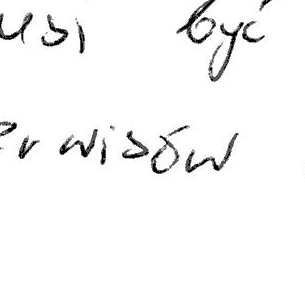 usi być
erwisów